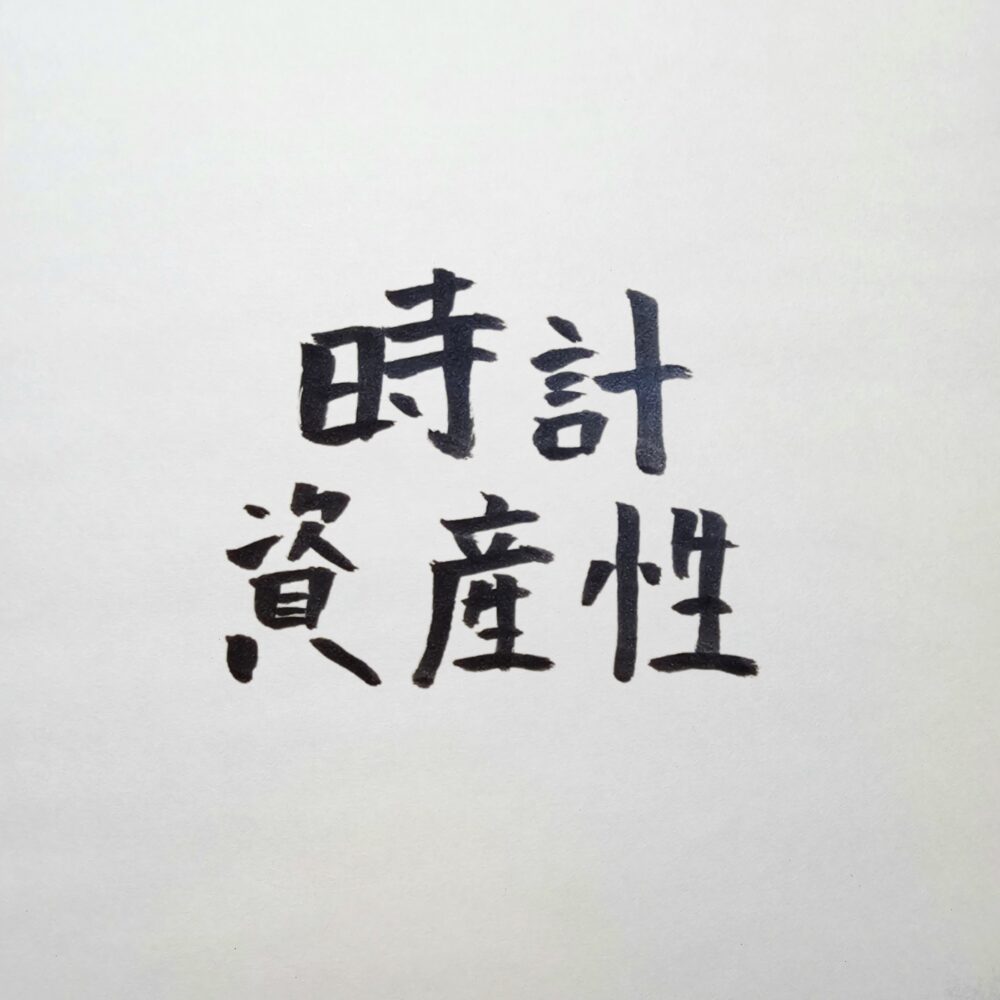 時計
資産性